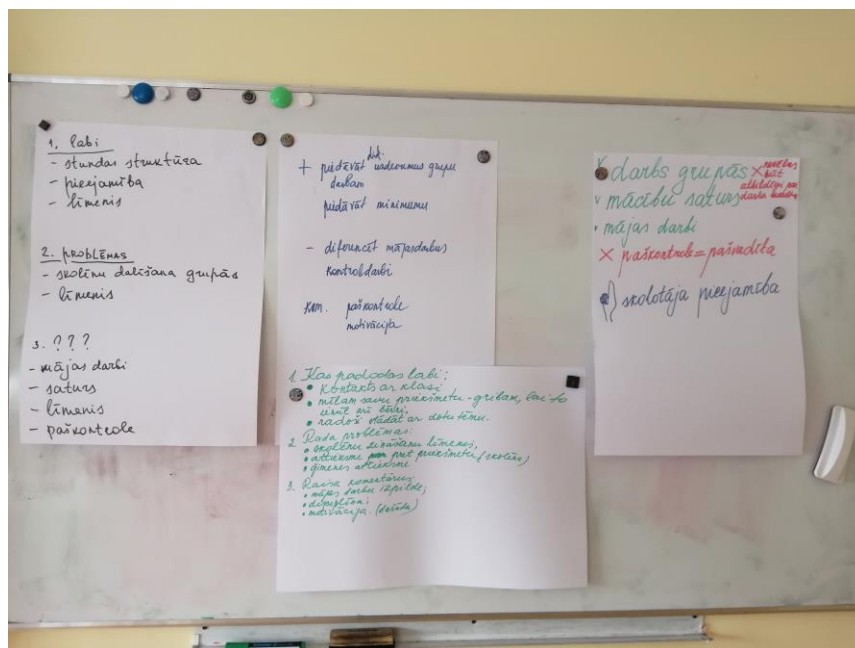 1. labi
- stundas struktūra
- pieejamība
- līmenis
2. PROBLĒMAS
- skolēnu dalīšana grupās
- līmenis
3. ???
- mājas darbi
- saturs
- līmenis
- paškontrole
dif.
+ piedāvāt uzdevumus grupu
darbam
piedāvāt minimumu
- diferencēt mājasdarbus
kontroldarbi
Kom. paškontrole
motivācija
1. Kas padodas labi:
• Kontakts ar klasi
• mīlam savu priekšmetu - gribam, lai to
zinātu arī bērni,
• radoši strādāt ar doto tēmu.
2. Rada problēmas:
• skolēnu zināšanu līmenis,
• attieksme pret priekšmetu (skolēns)
• ģimenes attieksme
3. Raisa komentārus:
• mājas darbu izpilde;
• disciplīna;
• motivācija. (dažāda)
v darbs grupās X nevēlas
būt
atbildīgi par
darba
v mācību saturs
• mājas darbi
X paškontrole = pašvadīta
skolotāja pieejamība